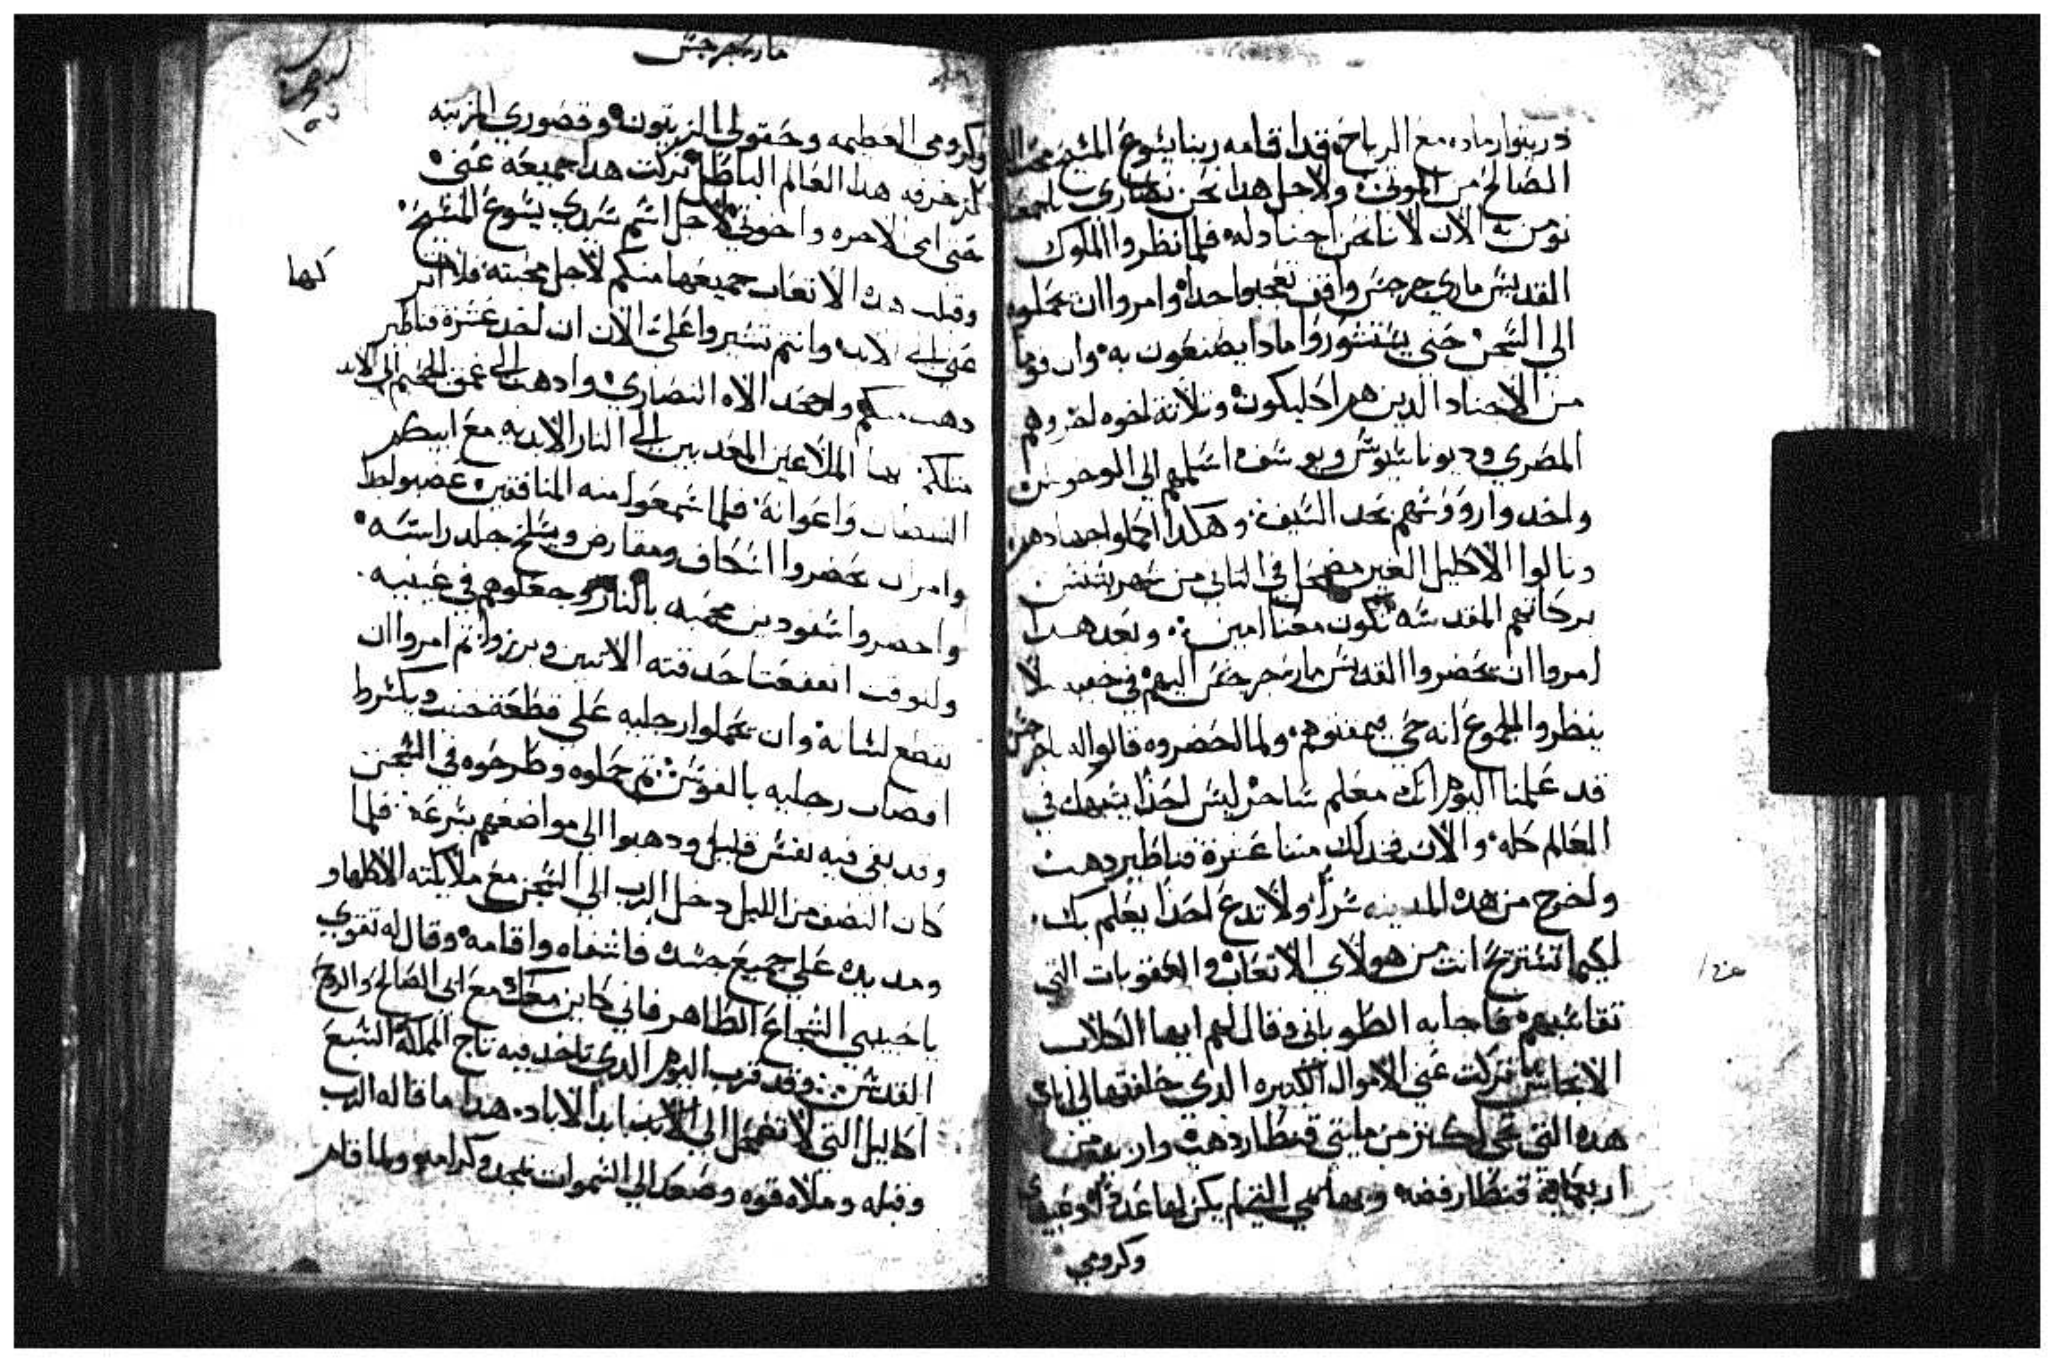 ذريتوا رماده مع الرياح قد اقامه ربنا يشوع المشيح
الصالح من الموتى ولاجل هدا نحن نصارى باجمعنا
نومن به الان لاننا نحن اجناد له فلما نظروا الملوك
القديس ماري جرجس واقف تعجبوا جدا وامروا ان يحملوه
الى السجن حتى يستشوروا مادا يصنعون به وان قوما
من الاجناد الدين هم احليكون وتلاتة اخوه اخر وهم
المصري وديوناسيوس ويوسف اسلمهم الى
واخدوا رووسهم بحد السيف وهكدا اكملوا اجهادهم
ونالوا الاكليل الغير مضمحل في التاني من شهر بشنس
بركاتهم المقدسه تكون معنا امين وبعد هدا
امروا ان يحضروا القديس مارجرجس اليهم في خفيه لئلا
ينظروا الجموع انه حي فيمقتوهم ولما احضروه قالوا له ياجرجس
قد علمنا اليوم انك معلم ساحر ليس احدا يشبهك في
العالم كله والان فخد لك مننا عشرة قناطير دهب
واخرج من هده المدينه سرا ولا تدع احدا يعلم بك
لكيما تستريح انت من هولاي الاتعاب والعقوبات التي
تقاسيهم فاجابه الطوباني وقال لهم ايها الكلاب
الانجاس ما تركت عني الاموال الكتيره الدي خلفتها لي اباي
هده التي هي اكتر من مايتي قنطار دهب واربعه من
اربعمايه قنطار فضه وبهايمي التي لم يكن لها عدد وعبيدي
وكرومي
مارجرجس
وكرومي العظيمه وحقولي الزيتون وقصوري المزينه
المزخرفه هدا العالم الباطل تركت هدا جميعه عني
حتى امي الاخره واخوتي لاجل اسم سيدي يسوع المسيح
وقبلت هده الاتعاب جميعها منكم لاجل محبته فلا اتر
كها
عني الى الابد وانتم تشيروا علي الان ان اخد عشرة قناطير
دهب منكم واجحد الاه النصارى وادهب الى عمق الجحيم الى الابد
متلكم يها الملاعين المعدبين الى النار الابديه مع ابيكم
الشيطان واعوانه فلما سمعوا منه المنافقين غضبوا
وامروا ان يحضروا اسكاف ومقارض ويسلخ جلد راسه
واحضروا سفودين محميه بالنار وجعلوهم في عينيه
وللوقت انفقعتا حدقته الاتنين وبرزوا تم امروا ان
يقطع لسانه وان يجعلوا رجليه على قطعة خشب ويكسروا
اقصاب رجليه بالفوس تم حملوه وطرحوه في السجن
وقد بقي فيه نفس قليل ودهبوا الى مواضعهم بسرعه فلما
كان النصف من الليل دخل الرب الى السجن مع ملايكته الاطهار
ومد يده على جميع جسده فاشفاه واقامه وقال له تقوى
يا حبيبي الشجاع الطاهر فاني كاين معك مع ابي الصالح والروح
القدس وقد قرب اليوم الدي تاخد فيه تاج المملكة السبع
اكاليل التي لا تضمحل الى الابد ابد الاباد هدا ما قاله الرب
وقبله وملاه قوه وصعد الى السموات بمجد وكرامه ولما قام